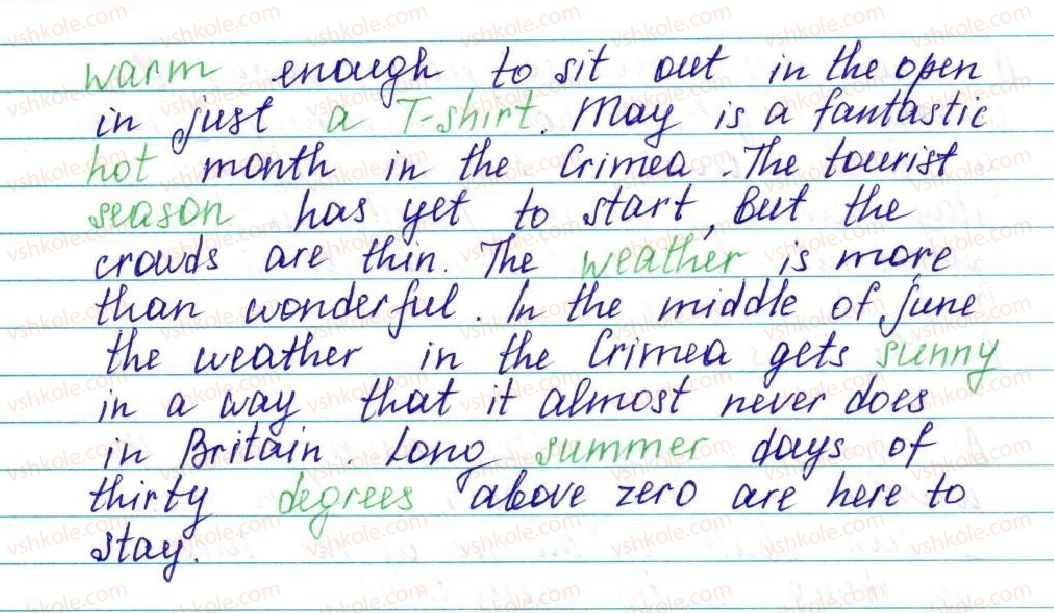 warm enough to sit out in the open
in just a T-shirt. May is a fantastic
hot month in the Crimea. The tourist
season has yet to start, But the
crowds are thin. The weather is more
than wonderful. In the middle of June
the weather in the Crimea gets sunny
in a way that it almost never does
in Britain. Long summer days of
thirty degrees above zero are here to
stay.